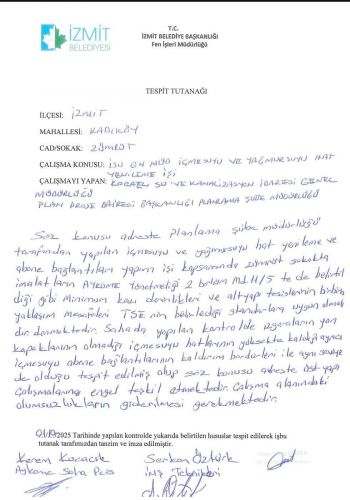 İZMİT
BELEDİYESİ
T.C.
İZMİT BELEDİYE BAŞKANLIĞI
Fen İşleri Müdürlüğü
TESPİT TUTANAĞI
İLÇESİ: İZMİT
MAHALLESİ: KADIKÖY
CAD/SOKAK: ZÜMRÜT
ÇALIŞMA KONUSU: İÇMESUYU VE YAĞMURSUYU HAT
YENİLEME İŞİ
ÇALIŞMAYI YAPAN: KOCAELİ SU VE KANALİZASYON İDARESİ GENEL
MÜDÜRLÜĞÜ
PLAN PROJE DAİRESİ BAŞKANLIĞI PLANLAMA ŞUBE MÜDÜRLÜĞÜ
Söz konusu adreste Planlama Şube müdürlüğü
tarafından yapılan içmesuyu ve yağmursuyu hat yenileme ve
abone bağlantıları yapım işi kapsamında zümrüt sokakta
imalatların AYKOME Yönetmeliği 2 bölüm Md. H/5 te de belirtil
diği gibi Minimum kazı derinlikleri ve altyapı tesislerinin birbirine
yaklaşım Mesafeleri TSE nin belirlediği standartlara uygun olmalı
dır denmektedir. Sahada yapılan kontrolde ızgaraların yan
kapaklarının olmadığı içmesuyu hatlarının yüksekte kaldığı ayrıca
içmesuyu abone bağlantılarının kaldırım bordürleri ile aynı seviye
de olduğu tespit edilmiş olup söz konusu adreste üst yapı
Çalışmalarına engel teşkil etmektedir. Çalışma alanındaki
olumsuzlukların giderilmesi gerekmektedir.
2025 Tarihinde yapılan kontrolde yukarıda belirtilen hususlar tespit edilerek işbu
tutanak tarafımızdan tanzim ve imza edilmiştir.
Kerem Kocacık
Serkan Öztürk
Aykome Saha Pers
İnş Teknikeri